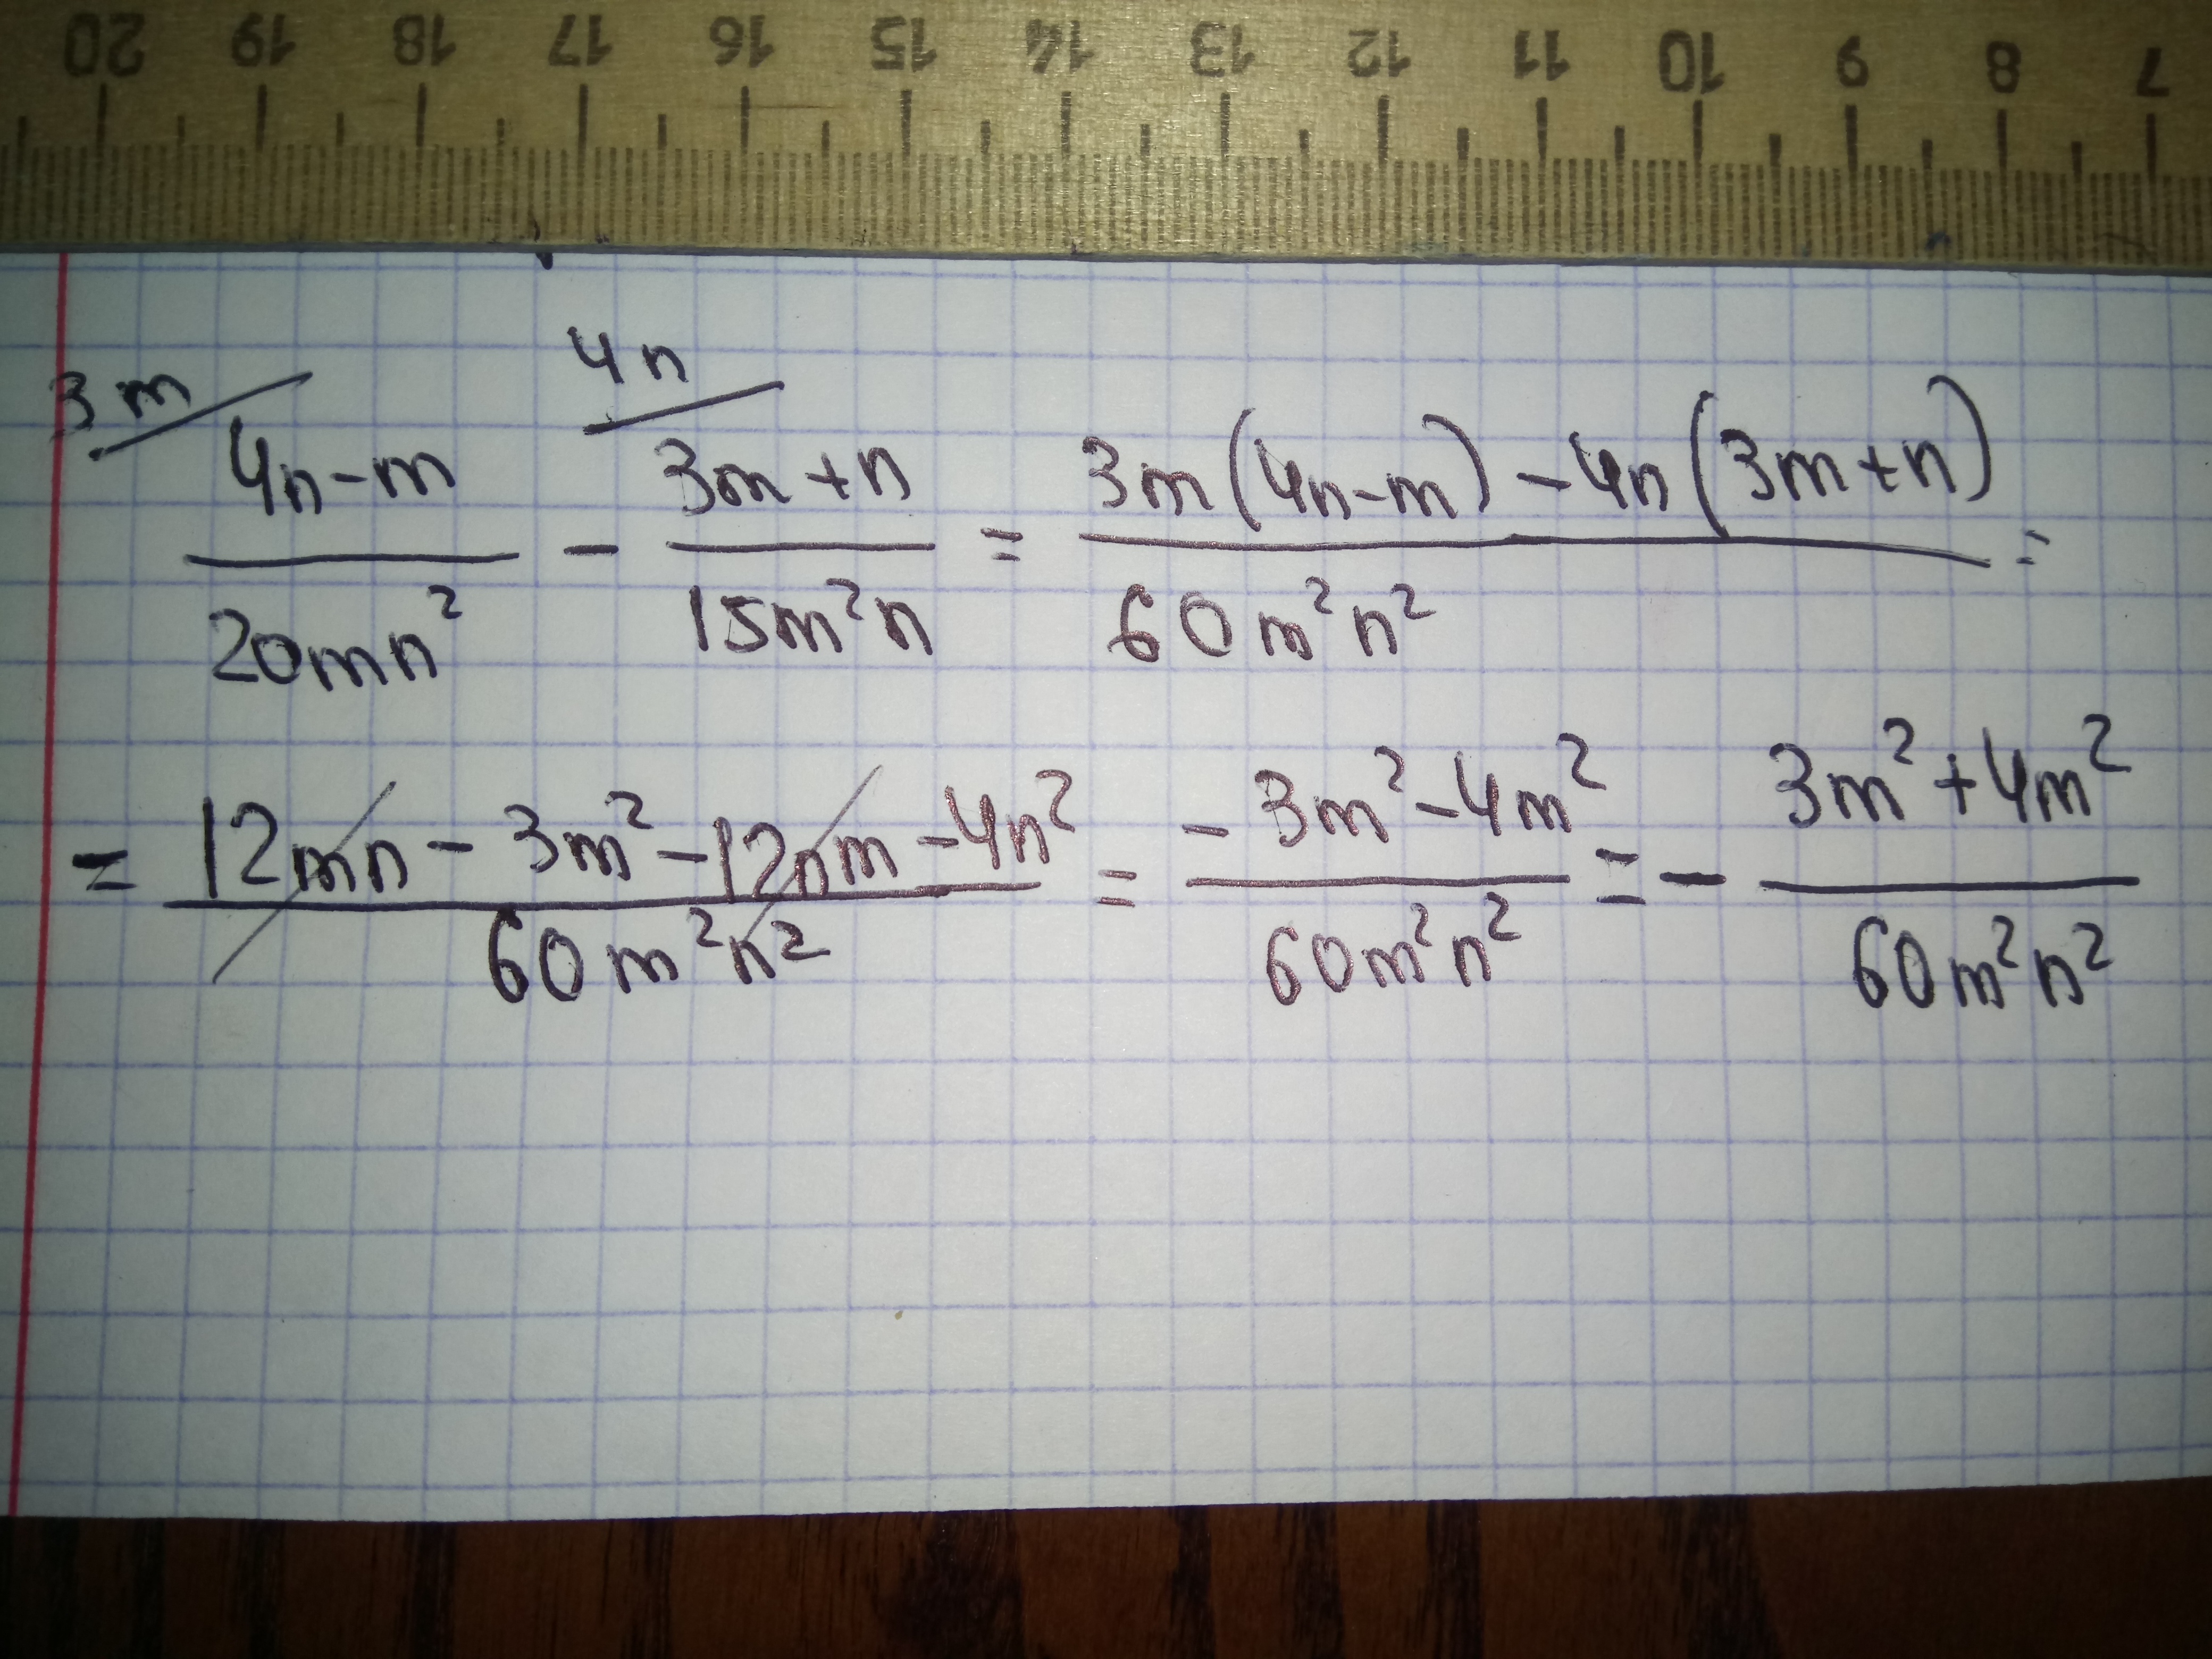 20 19 18 17 16 15 14 13 12 11 10 9 8 7
3m/ 4n/
(4n-m)/(20mn²) - (3m+n)/(15m²n) = (3m(4n-m) - 4n(3m+n))/(60m²n²) =
= (12mn - 3m² - 12nm - 4n²)/(60m²n²) = (-3m² - 4m²)/(60m²n²) = - (3m² + 4m²)/(60m²n²)